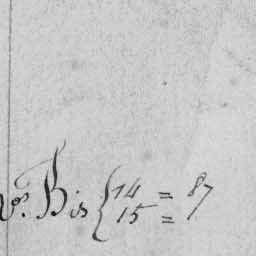 vos. Bis { 14 = 87
15 =